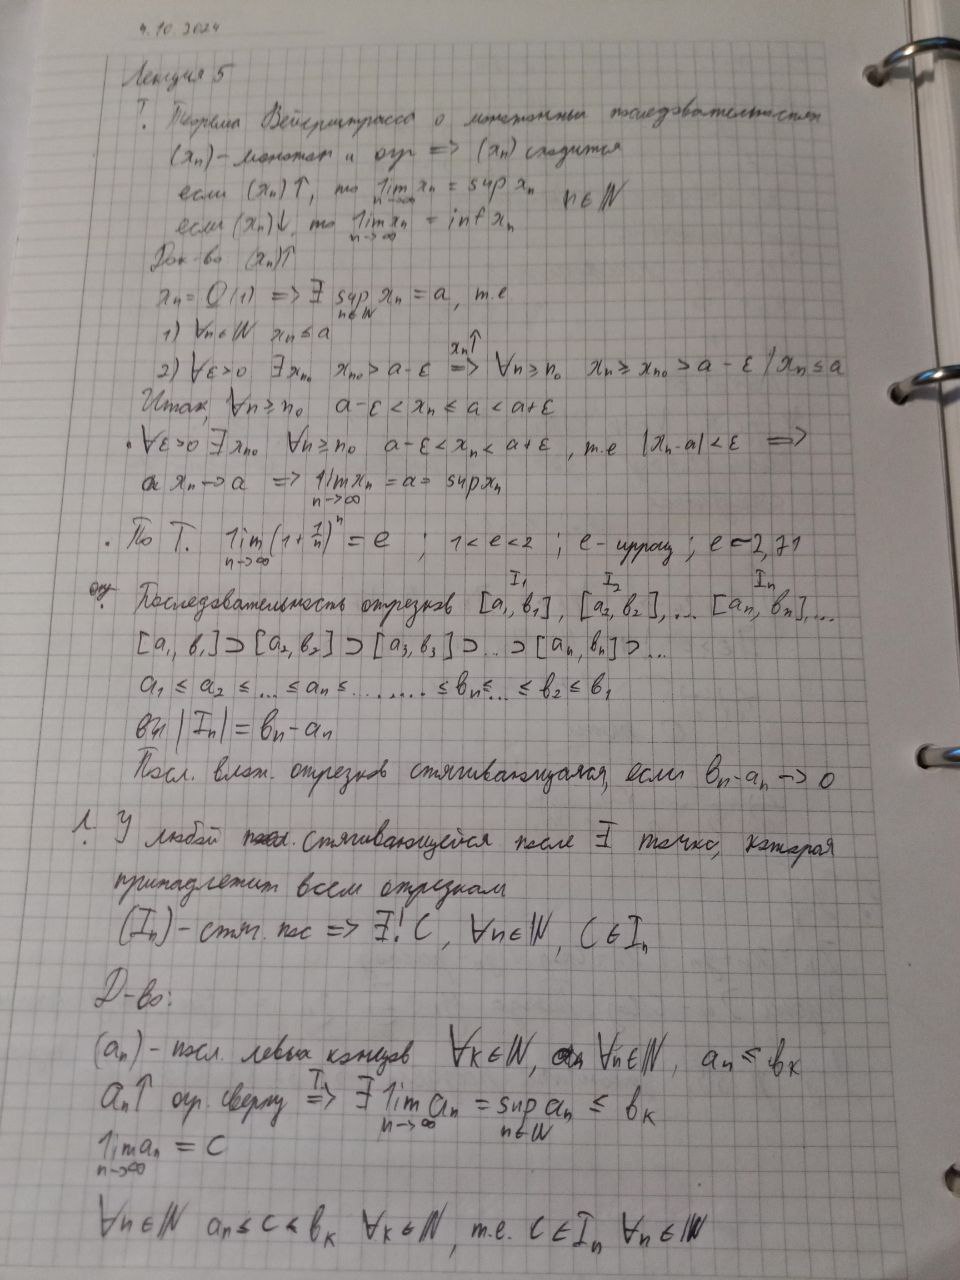 4.10.2024
Лекция 5
Т. Теорема Вейерштрасса о монотонных последовательностях
(xₙ) - монотон и огр => (xₙ) сходится
если (xₙ)↑, то lim xₙ = sup xₙ n∈ℕ
n→∞
если (xₙ)↓, то lim xₙ = inf xₙ
n→∞
Док-во (xₙ)↑
xₙ = O(1) => ∃ sup xₙ = a, т.е
n∈ℕ
1) ∀n∈ℕ xₙ ≤ a
2) ∀ε>0 ∃xₙ₀ xₙ₀ > a-ε xₙ↑ => ∀n ≥ n₀ xₙ ≥ xₙ₀ > a-ε / xₙ ≤ a
Итак, ∀n ≥ n₀ a-ε < xₙ ≤ a < a+ε
• ∀ε>0 ∃xₙ₀ ∀n ≥ n₀ a-ε < xₙ < a+ε, т.е |xₙ-a| < ε =>
xₙ → a => lim xₙ = a = sup xₙ
n→∞
• По Т. lim (1+1/n)ⁿ = e ; 1<e<2 ; e - иррац ; e ~ 2,71
n→∞
I₁ I₂ Iₙ
опр. Последовательность отрезков [a₁, b₁], [a₂, b₂], ... [aₙ, bₙ], ...
[a₁, b₁] ⊃ [a₂, b₂] ⊃ [a₃, b₃] ⊃ ... ⊃ [aₙ, bₙ] ⊃ ...
a₁ ≤ a₂ ≤ ... ≤ aₙ ≤ ........ ≤ bₙ ≤ ... ≤ b₂ ≤ b₁
|Iₙ| = bₙ - aₙ
Посл. влож. отрезков стягивающаяся, если bₙ - aₙ → 0
Л. У любой стягивающейся после ∃ точка, которая
принадлежит всем отрезкам
(Iₙ) - стяг. пос => ∃! C, ∀n∈ℕ, C ∈ Iₙ
Д-во:
(aₙ) - посл. левых концов ∀k∈ℕ, ∀n∈ℕ, aₙ ≤ bₖ
aₙ↑ огр. сверху Т. => ∃ lim aₙ = sup aₙ ≤ bₖ
n→∞ n∈ℕ
lim aₙ = C
n→∞
∀n∈ℕ aₙ ≤ C ≤ bₖ ∀k∈ℕ, т.е. C ∈ Iₙ ∀n∈ℕ